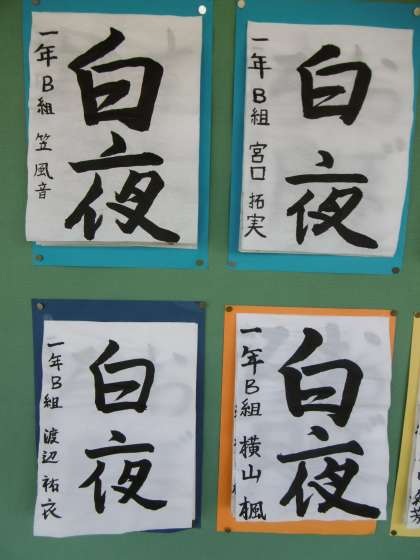 白夜
一年B組 笠 風音
白夜
一年B組 宮口 拓実
白夜
一年B組 渡辺 祐衣
白夜
一年B組 横山 楓